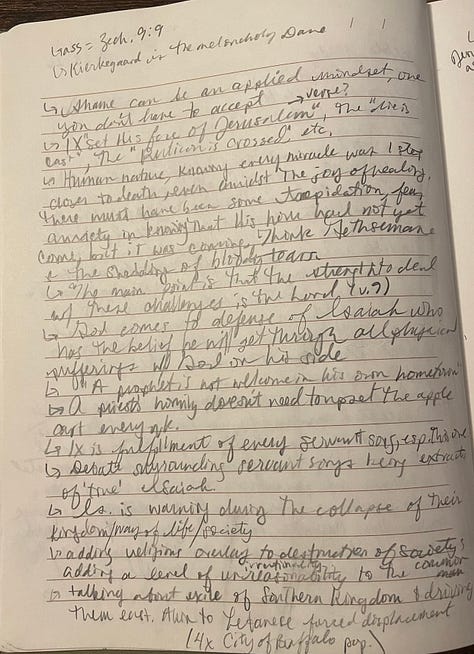 Gass = Zech. 9:9
↳ Kierkegaard is the melancholy Dane
↳ Shame can be an applied mindset, one
you don't have to accept → verse?
↳ IX "set His face of Jerusalem", the "die is
cast", the "Rubicon is crossed", etc.
↳ Human nature, knowing every miracle was 1 step
closer to death, even amidst the joy of healing,
there must have been some trepidation, fear,
anxiety in knowing that His hour had not yet
come, but it was coming, Think Gethsemane
& the shedding of bloody tears
↳ The main point is that the strength to deal
w/ these challenges is the Lord (v. 9)
↳ God comes to defense of Isaiah who
has the belief he will get through all physical
sufferings w/ God on his side
↳ "A prophet is not welcome in his own hometown"
↳ A priest's homily doesn't need to upset the apple
cart every wk.
↳ IX is fulfillment of every servant song, esp. this one
↳ Debate surrounding servant songs being extracts
of 'true' Isaiah.
↳ Is. is warning during the collapse of their
kingdom/way of life/society
↳ adding religious overlay to destruction of society;
adding a level of unreasonability irrationality to the common man
↳ talking about exile of Southern Kingdom & driving
them east. Akin to Lebanese forced displacement
(4x City of Buffalo pop.)